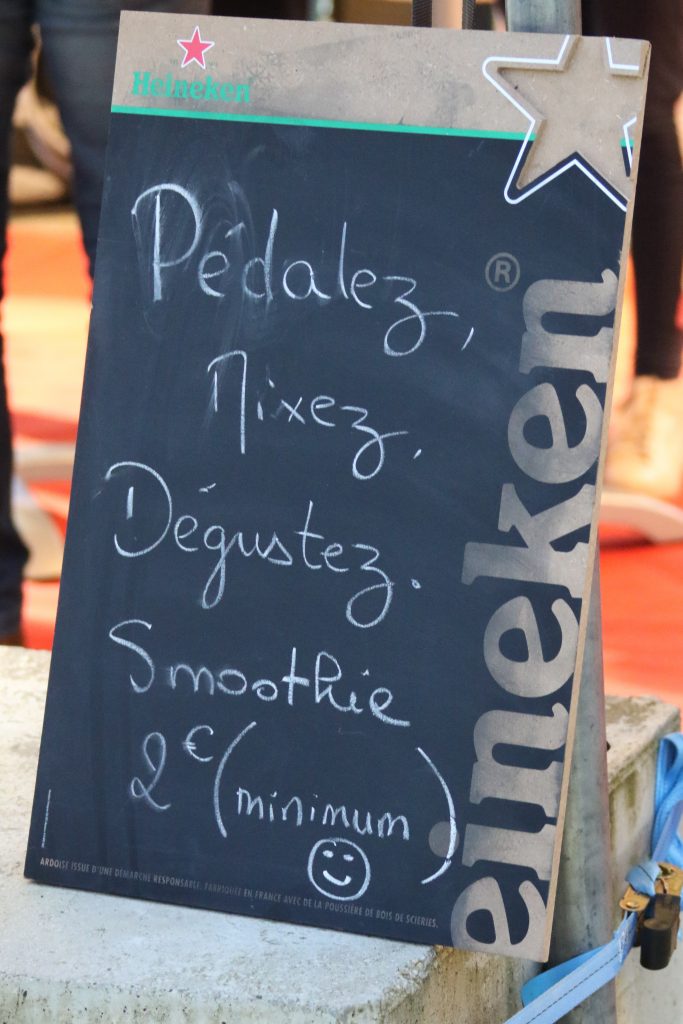 Heineken
Pédalez,
Mixez.
Dégustez.
Smoothie
2€ (minimum)
eineken®
ARDOISE ISSUE D'UNE DÉMARCHE RESPONSABLE. FABRIQUÉE EN FRANCE AVEC DE LA POUSSIÈRE DE BOIS DE SCIERIES.